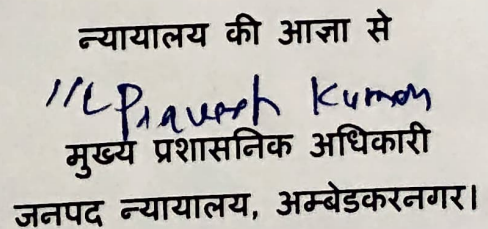 न्यायालय की आज्ञा से
Pravesh Kumar
मुख्य प्रशासनिक अधिकारी
जनपद न्यायालय, अम्बेडकरनगर।